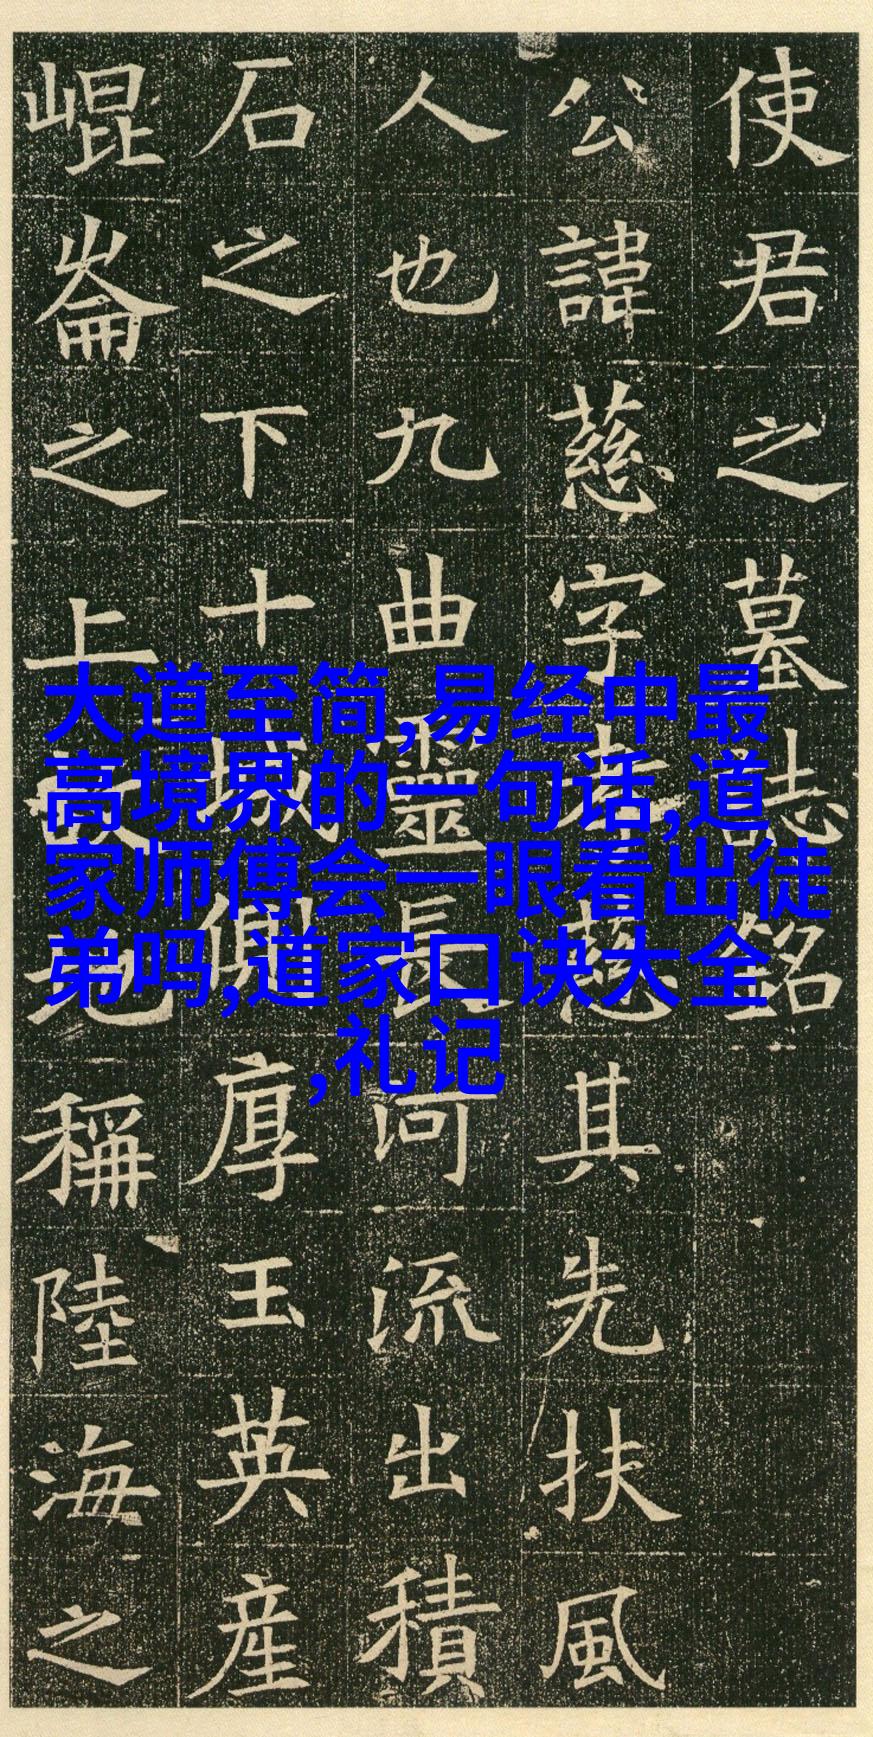 使君之墓誌銘
公諱慈字孝慈其先扶風
人也九曲靈長河流出積
石之下十城側厚玉英産
崐崙之上稱陸海之
大道至简,易经中最
高境界的一句话,道
家师傅会一眼看出徒
弟吗,道家口诀大全
,礼记